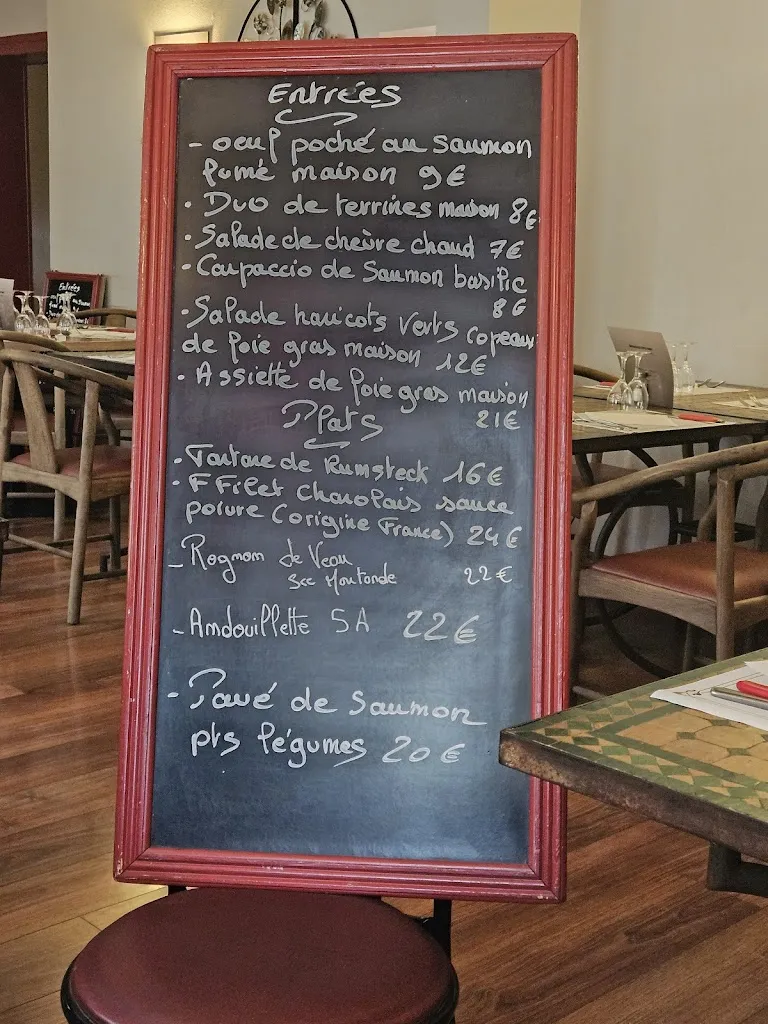 Entrées
- oeuf poché au saumon
fumé maison 9€
• Duo de terrines maison 8€
• Salade de chèvre chaud 7€
• Carpaccio de saumon basilic
8€
• Salade haricots verts copeaux
de foie gras maison 12€
• Assiette de foie gras maison
21€
Plats
• Tartare de Rumsteck 16€
• F Filet charolais sauce
poivre (origine France) 24€
- Rognom de Veau
sce Moutarde 22€
- Amdouillette 5A 22€
- Pavé de saumon
pts légumes 20€
Entrées